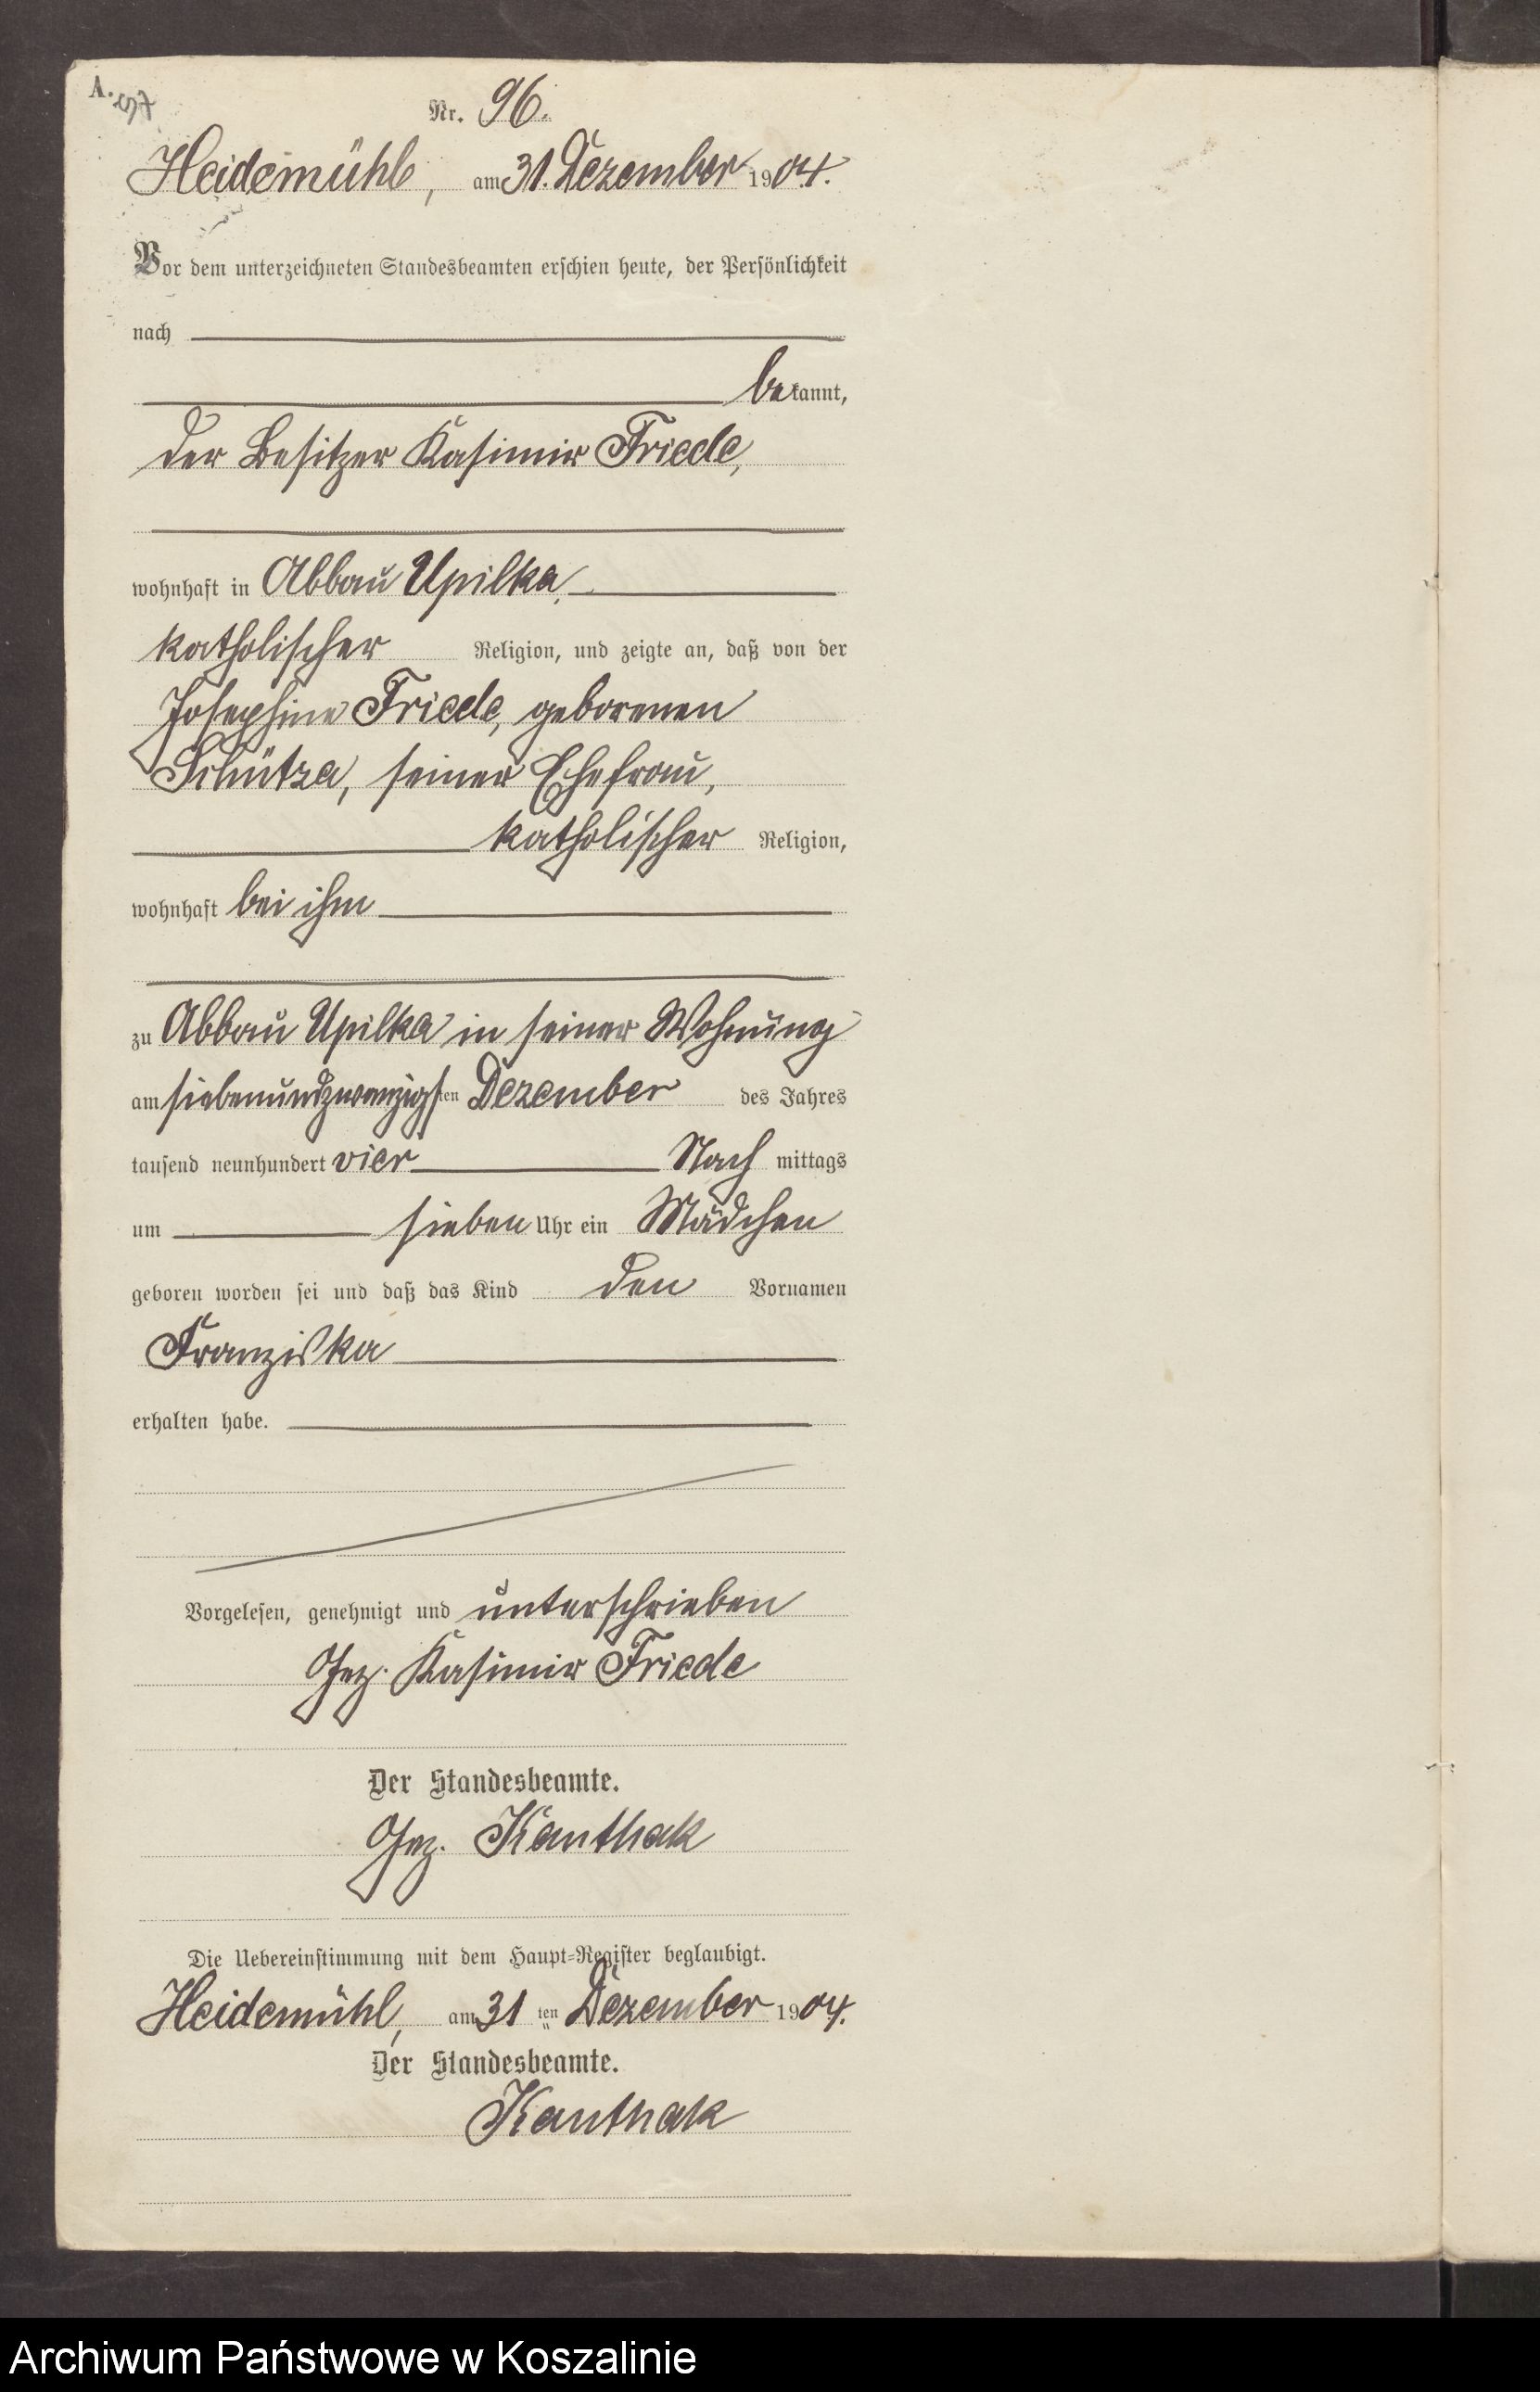 A.
57
Nr. 96.
Heidemühl, am 31. Dezember 1904.
Vor dem unterzeichneten Standesbeamten erschien heute, der Persönlichkeit
nach
bekannt,
der Besitzer Kasimir Friede,
wohnhaft in Abbau Upilka,
katholischer Religion, und zeigte an, daß von der
Josephine Friede, geborenen
Schütza, seiner Ehefrau,
katholischer Religion,
wohnhaft bei ihm
zu Abbau Upilka in seiner Wohnung
am siebenundzwanzigsten Dezember des Jahres
tausend neunhundert vier Nach mittags
um sieben Uhr ein Mädchen
geboren worden sei und daß das Kind den Vornamen
Franziska
erhalten habe.
Vorgelesen, genehmigt und unterschrieben
Gez. Kasimir Friede
Der Standesbeamte.
Gez. Kanthak
Die Uebereinstimmung mit dem Haupt-Register beglaubigt.
Heidemühl, am 31 ten Dezember 1904.
Der Standesbeamte.
Kanthak
Archiwum Państwowe w Koszalinie